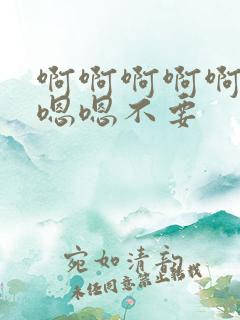 啊啊啊啊啊
嗯嗯不要
宛如清韵
未经同意禁止转载